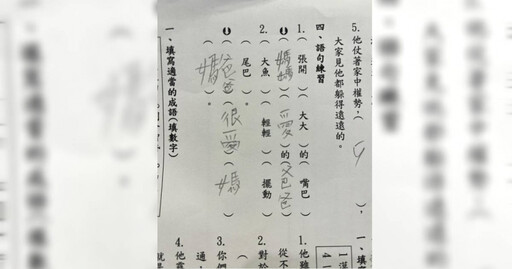 5. 他仗著家中權勢，（ 9 ），
大家見他都躲得遠遠的。
四、語句練習
1.（張開）（大大）的（嘴巴）
（媽媽）（愛）的（爸爸）
2.（大魚）（輕輕）（擺動）
（尾巴）。
（爸爸）（很愛）（媽）
（媽）。
一、填寫適當的成語（填數字）
一、填
1. 他雖
從不
2. 對於
3. 你們
通，
4. 他
就是